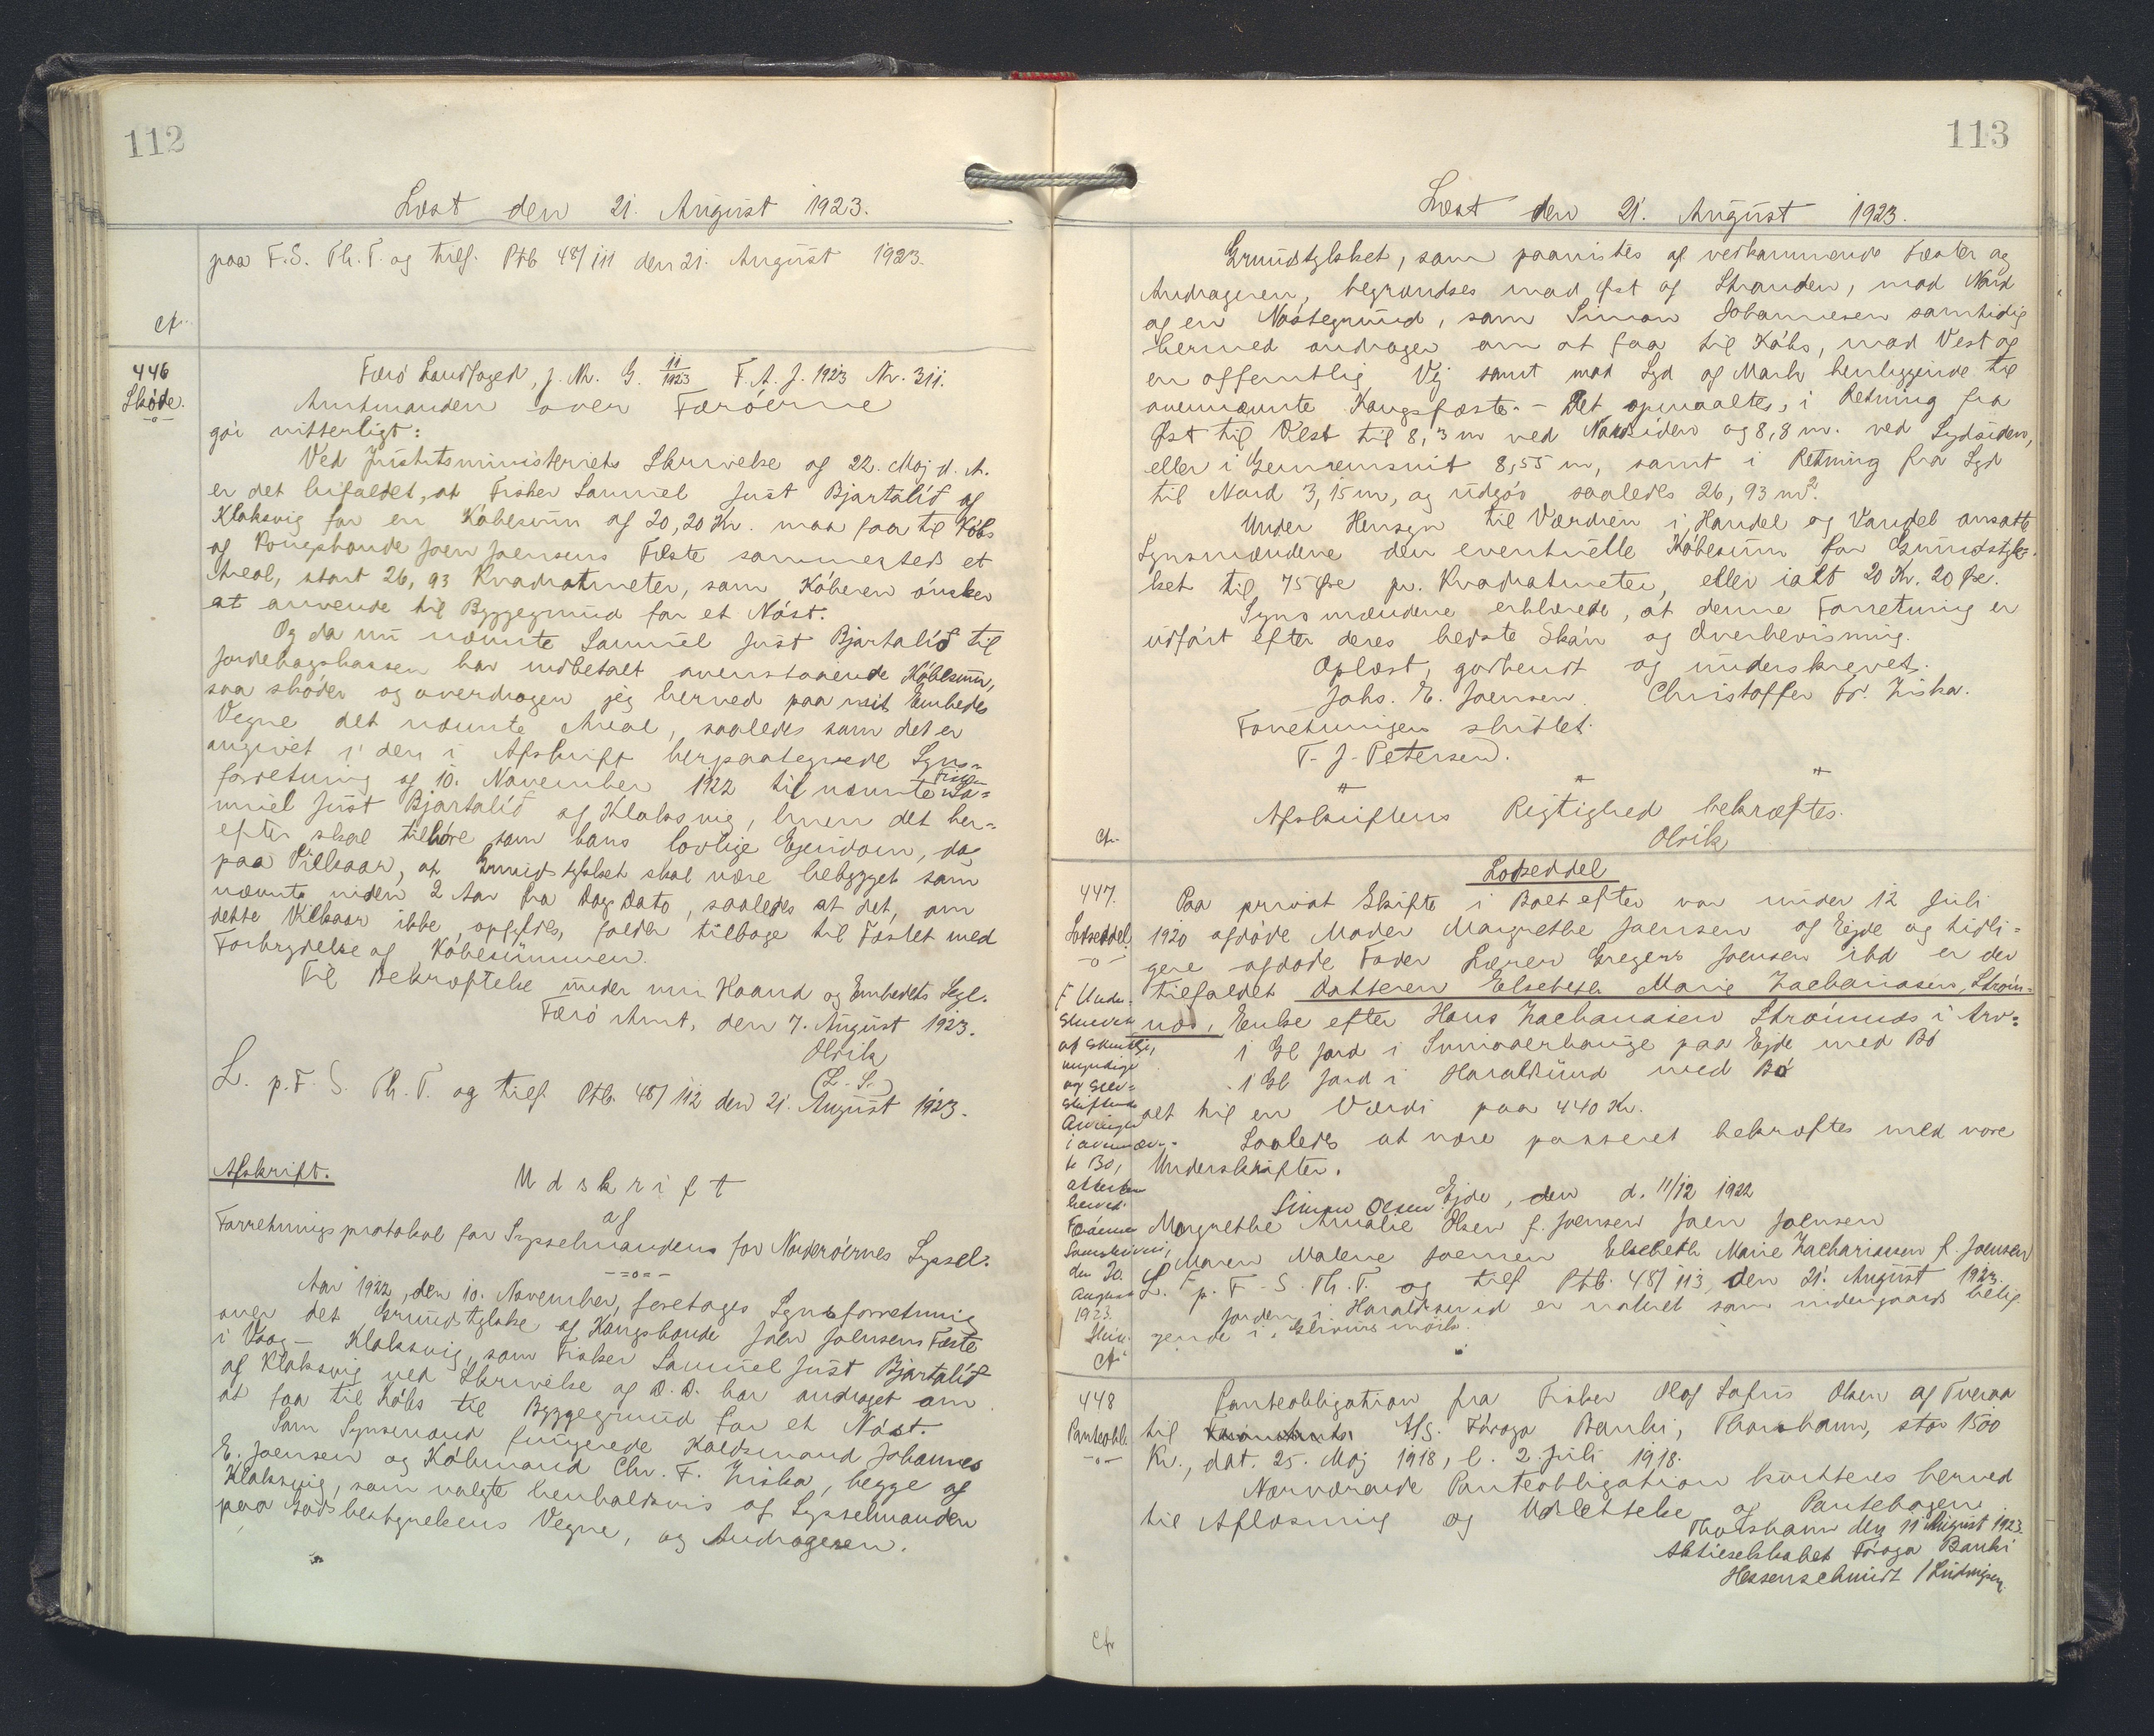 112
Læst den 21. August 1923.
paa F.S. Th. T. og tilf. Ptb 48/111 den 21. August 1923.
Cf.
446
Skøde.
Færø Landfoged, J. Nr. G. 11/1923 F. A. J. 1923 Nr. 311.
Amtmanden over Færøerne
gør vitterligt:
Ved Justitsministeriets Skrivelse af 22. Maj d. A.
er det bifaldet, at Fisker Samuel Just Bjartalíð af
Klaksvig for en Købesum af 20,20 Kr. maa faa til Købs
af Kongsbonde Joen Joensens Fæste sammesteds et
Areal, stort 26,93 Kvadratmeter, som Køberen ønsker
at anvende til Byggegrund for et Nøst.
Og da nu nævnte Samuel Just Bjartalíð til
Jordebogskassen har indbetalt ovenstaaende Købesum,
saa skøder og overdrager jeg herved paa mit Embeds
Vegne det nævnte Areal, saaledes som det er
angivet i den i Afskrift herpaategnede Syns-
forretning af 10. November 1922 til nævnte Fisker Sa-
muel Just Bjartalíð af Klaksvig, hvem det her-
efter skal tilhøre som hans lovlige Ejendom, dog
paa Vilkaar, at Grundstykket skal være bebygget som
nævnt inden 2 Aar fra Dags Dato, saaledes at det, om
dette Vilkaar ikke opfyldes, falder tilbage til Fæstet med
Forbrydelse af Købesummen.
Til Bekræftelse under min Haand og Embedets Segl.
Færø Amt, den 7. August 1923.
Olrik
(L. S.)
L. p. F. S. Th. T. og tilf. Ptb. 48/112 den 21. August 1923.
Afskrift.
Udskrift
af
Forretningsprotokol for Sysselmanden for Norderøernes Syssel.
--=o=--
Aar 1922, den 10. November, foretages Synsforretning
over det Grundstykke af Kongsbonde Joen Joensens Fæste
i Vaag - Klaksvig, som Fisker Samuel Just Bjartalíð
af Klaksvig ved Skrivelse af D. D. har andraget om
at faa til Købs til Byggegrund for et Nøst.
Som Synsmænd fungerede Kaldsmand Johannes
E. Joensen og Købmand Chr. F. Ziska, begge af
Klaksvig, som valgte henholdsvis af Sysselmanden
paa Godsbestyrelsens Vegne, og Andrageren.
113
Læst den 21. August 1923.
Grundstykket, som paavistes af vedkommende Fæster og
Andrageren, begrændses mod Øst af Stranden, mod Nord
af en Nøstegrund, som Simon Johannesen samtidig
hermed andrager om at faa til Købs, mod Vest af
en offentlig Vej samt mod Syd af Mark henliggende til
ovennævnte Kongsfæste. - Det opmaaltes, i Retning fra
Øst til Vest til 8,3 m ved Nordsiden og 8,8 m. ved Sydsiden,
eller i Gennemsnit 8,55 m, samt i Retning fra Syd
til Nord 3,15 m, og udgør saaledes 26,93 m².
Under Hensyn til Værdien i Handel og Vandel ansatte
Synsmændene den eventuelle Købesum for Grundstyk-
ket til 75 Øre pr. Kvadratmeter, eller ialt 20 Kr. 20 Øre.
Synsmændene erklærede, at denne Forretning er
udført efter deres bedste Skøn og Overbevisning.
Oplæst, godkendt og underskrevet.
Johs. E. Joensen. Christoffer Fr. Ziska.
Forretningen sluttet.
T. J. Petersen.
" " "
Afskriftens Rigtighed bekræftes.
Olrik
Cf.
Lodseddel
447.
Lodseddel
-o-
Paa privat Skifte i Boet efter vor under 12 Juli
1920 afdøde Moder Margrethe Joensen af Ejde og tidli-
gere afdøde Fader Lærer Gregers Joensen ibd er der
tilfaldet Datteren Elsebeth Marie Zachariasen, Strøm-
næs, Enke efter Hans Zachariasen Strømnæs i Arv:
1 Gl Jord i Innaderhauge paa Ejde med Bø
1 Gl Jord i Haraldsund med Bø
alt til en Værdi paa 440 Kr.
Saaledes at være passeret bekræftes med vore
Underskrifter.
Ejde, den d. 11/12 1922
Simon Olsen
Margrethe Amalie Olsen f. Joensen Joen Joensen
Maren Malene Joensen Elsebeth Marie Zachariasen f. Joensen
L. p. F. S. Th. T. og tilf Ptb. 48/113, den 21. August 1923.
Jorden i Haraldsund er noteret som indengaards belig-
gende i Glivurs mørk.
F Unde-
skrevet
af samtlige
myndige
og selv-
skiftende
Arvinger
i ovennævn-
te Bo,
attesteres
herved.
Færøernes
Sorenskriveri,
den 20.
August
1923.
Cf.
448
Panteobl.
-o-
Panteobligation fra Fisker Olaf Sofus Olsen af Tveraa
til A/S. Føroya Banki, Thorshavn, stor 1500
Kr., dat. 25. Maj 1918, l. 2. Juli 1918.
Nærværende Panteobligation kvitteres herved
til Aflæsning og Udslettelse af Pantebogen.
Thorshavn den 11 August 1923.
Aktieselskabet Føroya Banki
Hessenschmidt / Ludvigsen.
Cf.